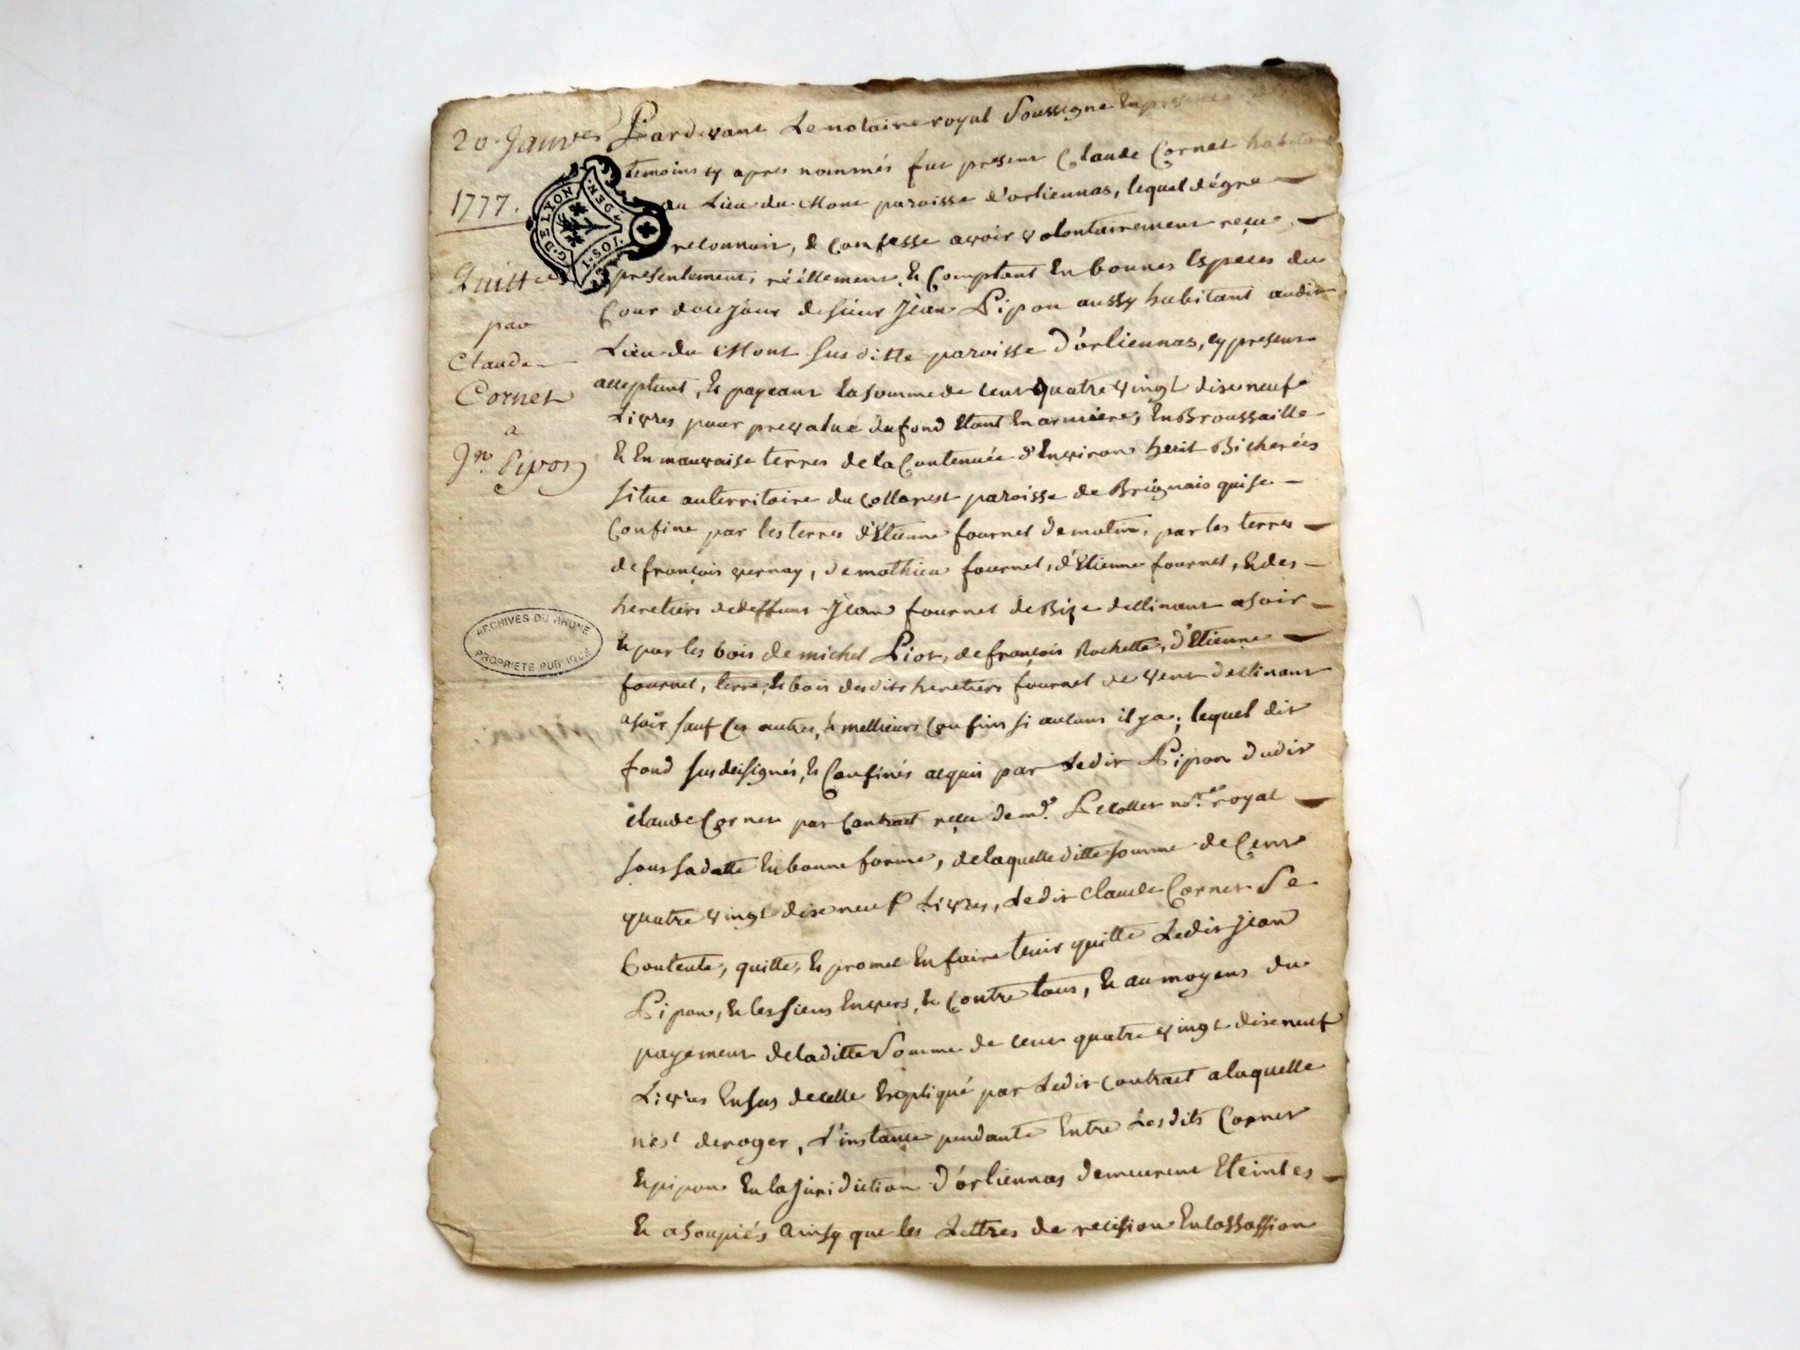 20 Janvier
1777.
Quittce
par
Claude
Cornet
a
Jn. Pipon
G. DE LYON
DEN.
SOLS.
ARCHIVES DU RHONE
PROPRIETE PUBLIQUE
Pardevant Le notaire royal Soussigne En presence
temoins cy apres nommés fut present Claude Cornet habitant
au Lieu du Mont paroisse d'orliennas, lequel dégre
reconnoit, & Confesse avoir volontairement reçu
presentement, réellement & Comptant En bonnes Especes du
Cour dece jour de sieur Jean Pipon aussy habitant audit
Lieu du Mont susditte paroisse d'orliennas, cy present
acceptant, & payeant la somme de cent quatre vingt dixe neuf
Livres pour prevalué du fond Etant En Broussaille
& En mauvaise terres de la Contenuée d'Environ huit Bicherées
situe au territoire du Collarest paroisse de Brignais qui se
Confine par les terres d'Etienne fournet de matin, par les terres
de françois vernay, de mathieu fournet, d'Etienne fournet, & des
heretiers de deffunt Jean fournet de Bize declinant a soir
& par les bois de michel Piot, de françois Rochette, d'Etienne
fournet, terre, & bois desdits heretiers fournet de vent declinant
a soir sauf les autres, & mellieurs Confins si aucuns il ya; lequel dit
fond sus designés, & Confinés acquis par Ledit Pipon dudit
claude Cornet par Contract reçu de me. notre royal
sous sa datte En bonne forme, de laquelle ditte somme de Cent
quatre vingt dixe neuf Livres, Ledit claude Cornet Se
Contente, quitte, & promet En faire tenir quitte Ledit Jean
Pipon, & les siens Envers, & Contre tous, & au moyens du
payement de laditte Somme de cent quatre vingt dixe neuf
Livres En sus decelle Expliqué par Ledit contract a laquelle
n'est deroger, L'instance pendante Entre Lesdits Cornet
& pipon En la Juridiction d'orliennas demeurent Eteintes
& asoupiés Ainsy que les Lettres de recision